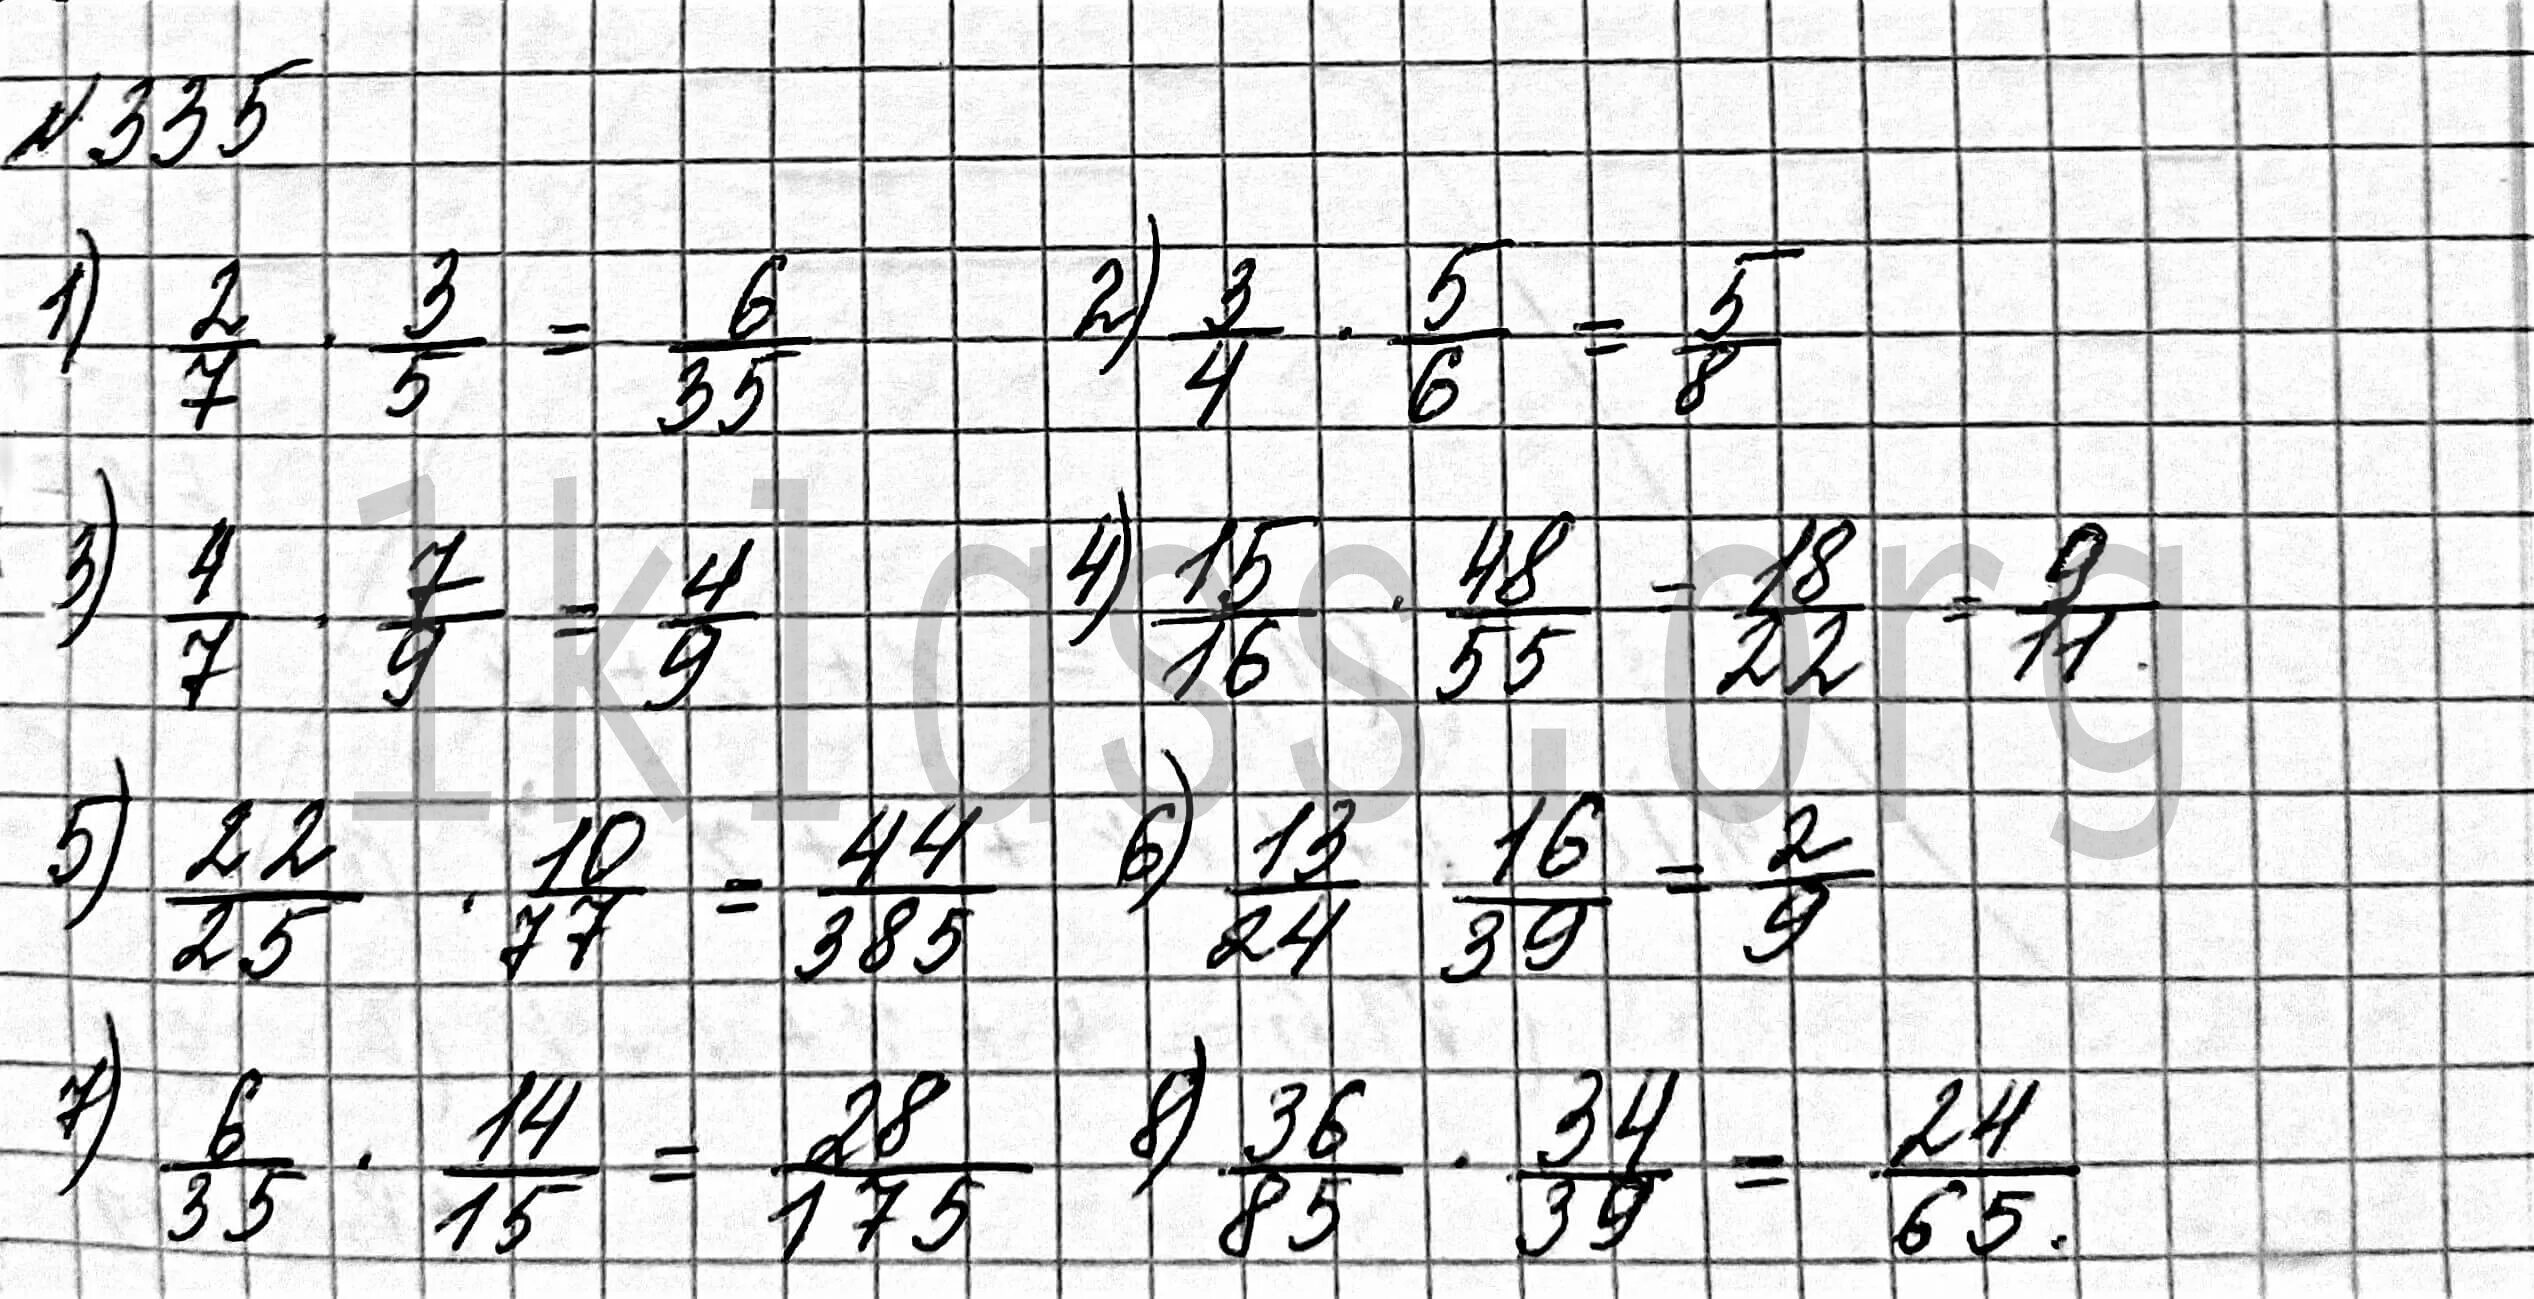 №335
1) 2/7 · 3/5 = 6/35 2) 3/4 · 5/6 = 5/8
3) 4/7 · 7/9 = 4/9 4) 15/16 · 48/55 = 18/22 = 9/11.
5) 22/25 · 10/77 = 44/385 6) 13/24 · 16/39 = 2/9
7) 6/35 · 14/15 = 28/175 8) 36/85 · 34/39 = 24/65.
1klass.org